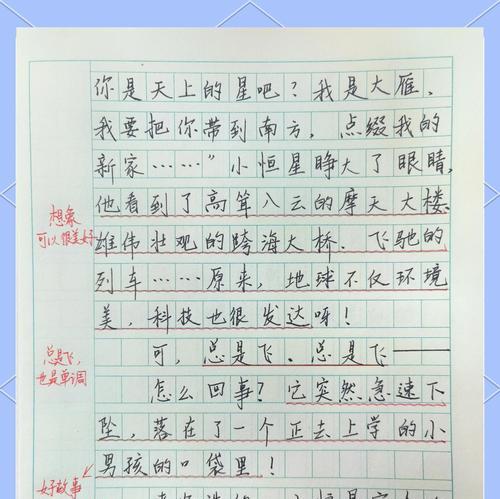 你是天上的星吧？我是大雁，
我要把你带到南方，点缀我的
新家……”小恒星睁大了眼睛，
他看到了高耸入云的摩天大楼
想象
可以很美好
雄伟壮观的跨海大桥、飞驰的
列车……原来，地球不仅环境
美，科技也很发达呀！
总是飞，
也是单调
可，总是飞、总是飞——
怎么回事？它突然急速下
坠，落在了一个正去上学的小
男孩的口袋里！
好故事